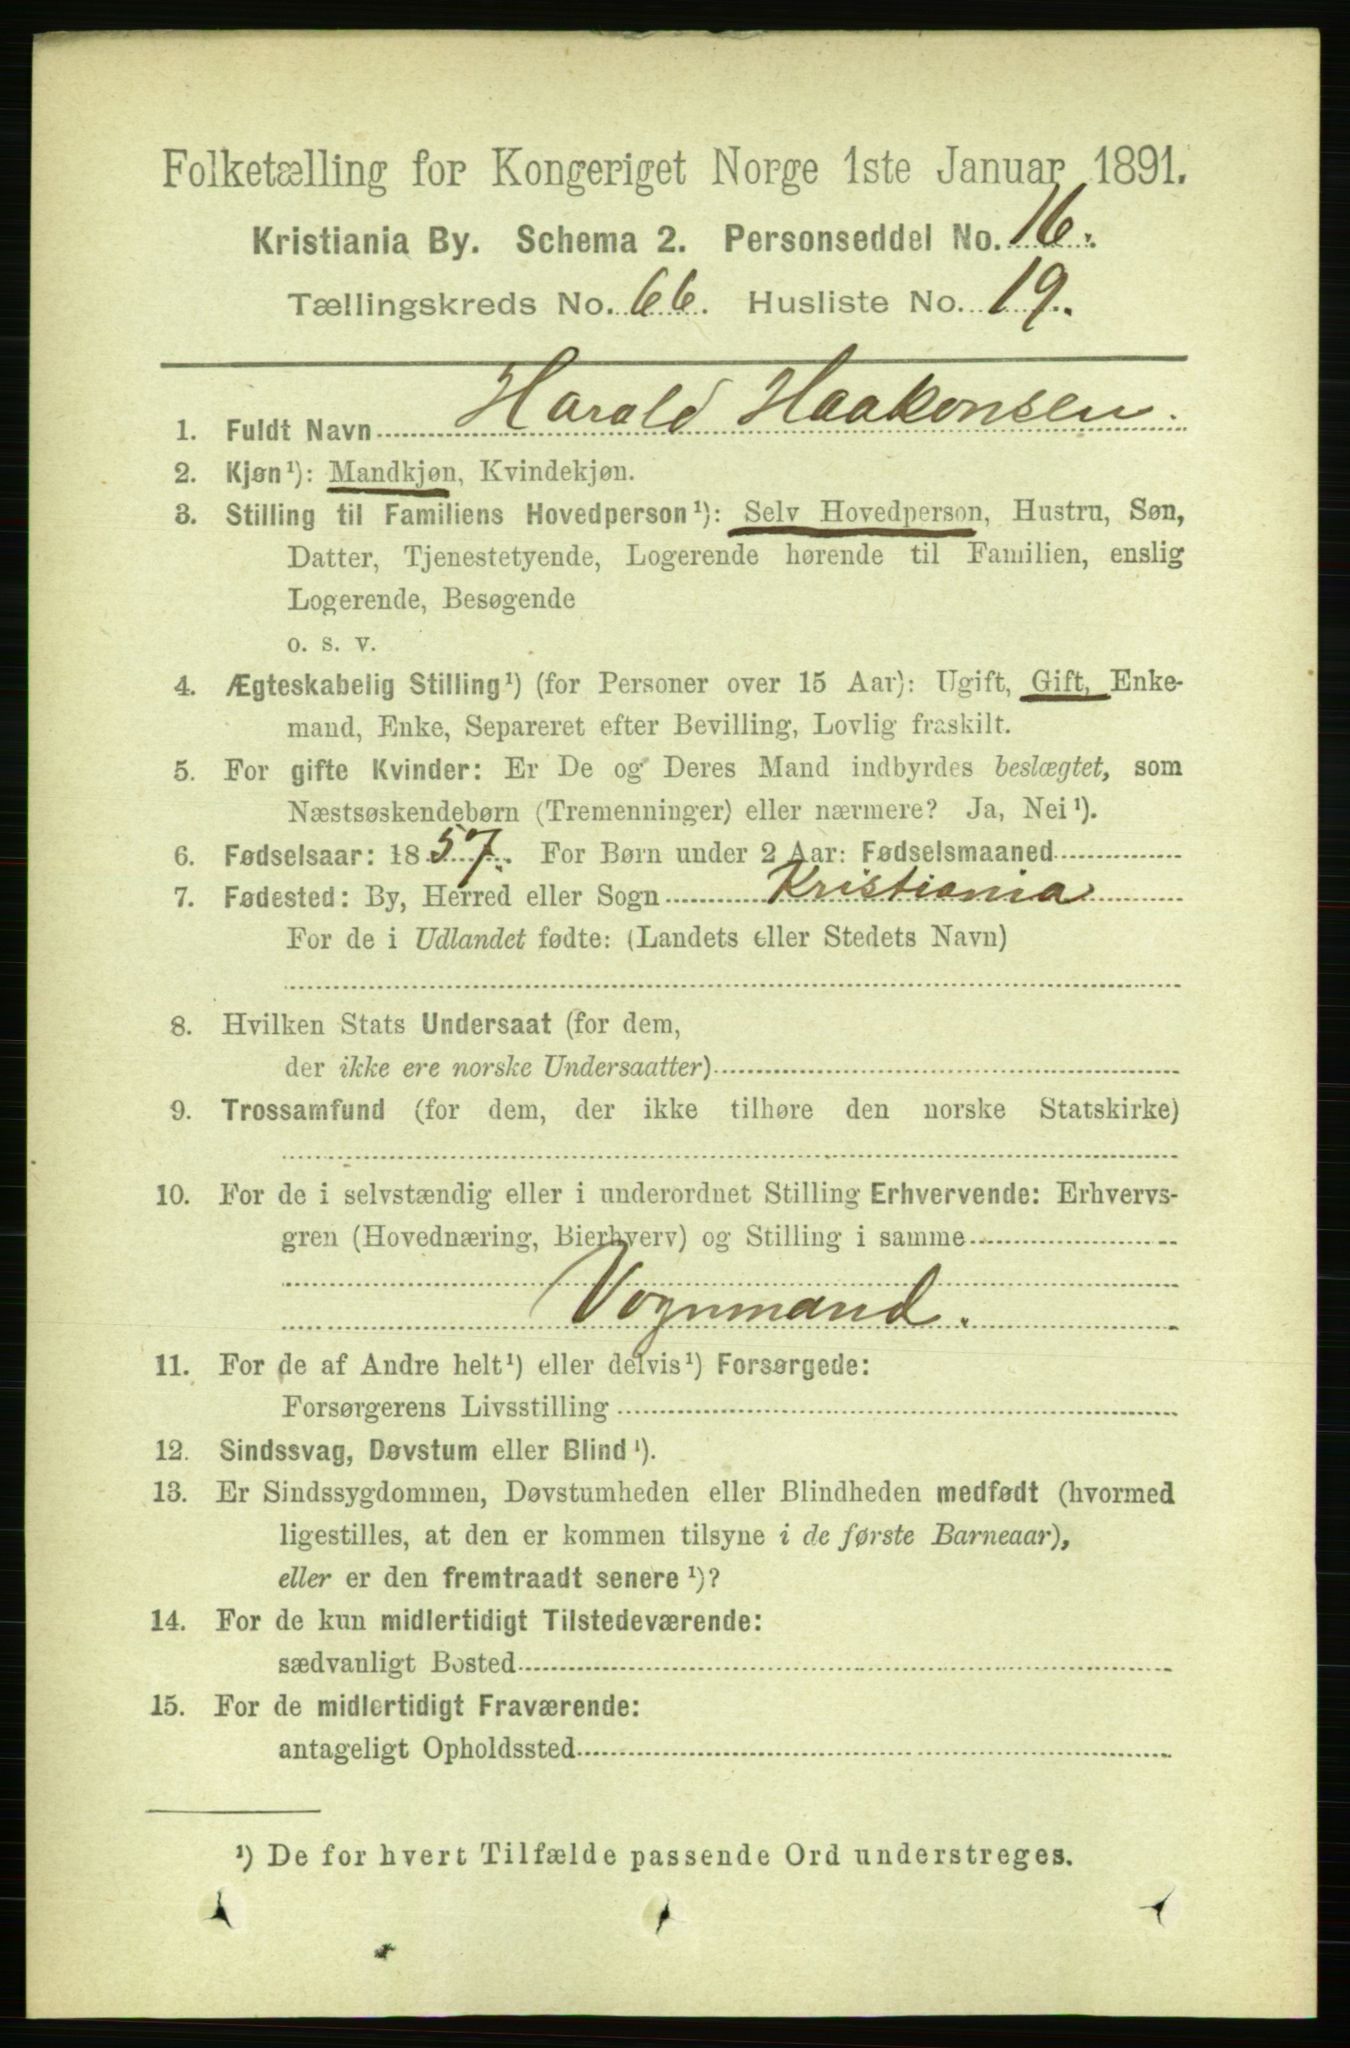 Folketælling for Kongeriget Norge 1ste Januar 1891.
Kristiania By. Schema 2. Personseddel No. 16.
Tællingskreds No. 66. Husliste No. 19.
1. Fuldt Navn Harald Haakonsen.
2. Kjøn¹): Mandkjøn, Kvindekjøn.
3. Stilling til Familiens Hovedperson¹): Selv Hovedperson, Hustru, Søn,
Datter, Tjenestetyende, Logerende hørende til Familien, enslig
Logerende, Besøgende
o. s. v.
4. Ægteskabelig Stilling¹) (for Personer over 15 Aar): Ugift, Gift, Enke-
mand, Enke, Separeret efter Bevilling, Lovlig fraskilt.
5. For gifte Kvinder: Er De og Deres Mand indbyrdes beslægtet, som
Næstsøskendebørn (Tremenninger) eller nærmere? Ja, Nei¹).
6. Fødselsaar: 1857. For Børn under 2 Aar: Fødselsmaaned
7. Fødested: By, Herred eller Sogn Kristiania
For de i Udlandet fødte: (Landets eller Stedets Navn)
8. Hvilken Stats Undersaat (for dem,
der ikke ere norske Undersaatter)
9. Trossamfund (for dem, der ikke tilhøre den norske Statskirke)
10. For de i selvstændig eller i underordnet Stilling Erhvervende: Erhvervs-
gren (Hovednæring, Bierhverv) og Stilling i samme
Vognmand.
11. For de af Andre helt¹) eller delvis¹) Forsørgede:
Forsørgerens Livsstilling
12. Sindssvag, Døvstum eller Blind¹).
13. Er Sindssygdommen, Døvstumheden eller Blindheden medfødt (hvormed
ligestilles, at den er kommen tilsyne i de første Barneaar),
eller er den fremtraadt senere¹)?
14. For de kun midlertidigt Tilstedeværende:
sædvanligt Bosted
15. For de midlertidigt Fraværende:
antageligt Opholdssted
¹) De for hvert Tilfælde passende Ord understreges.